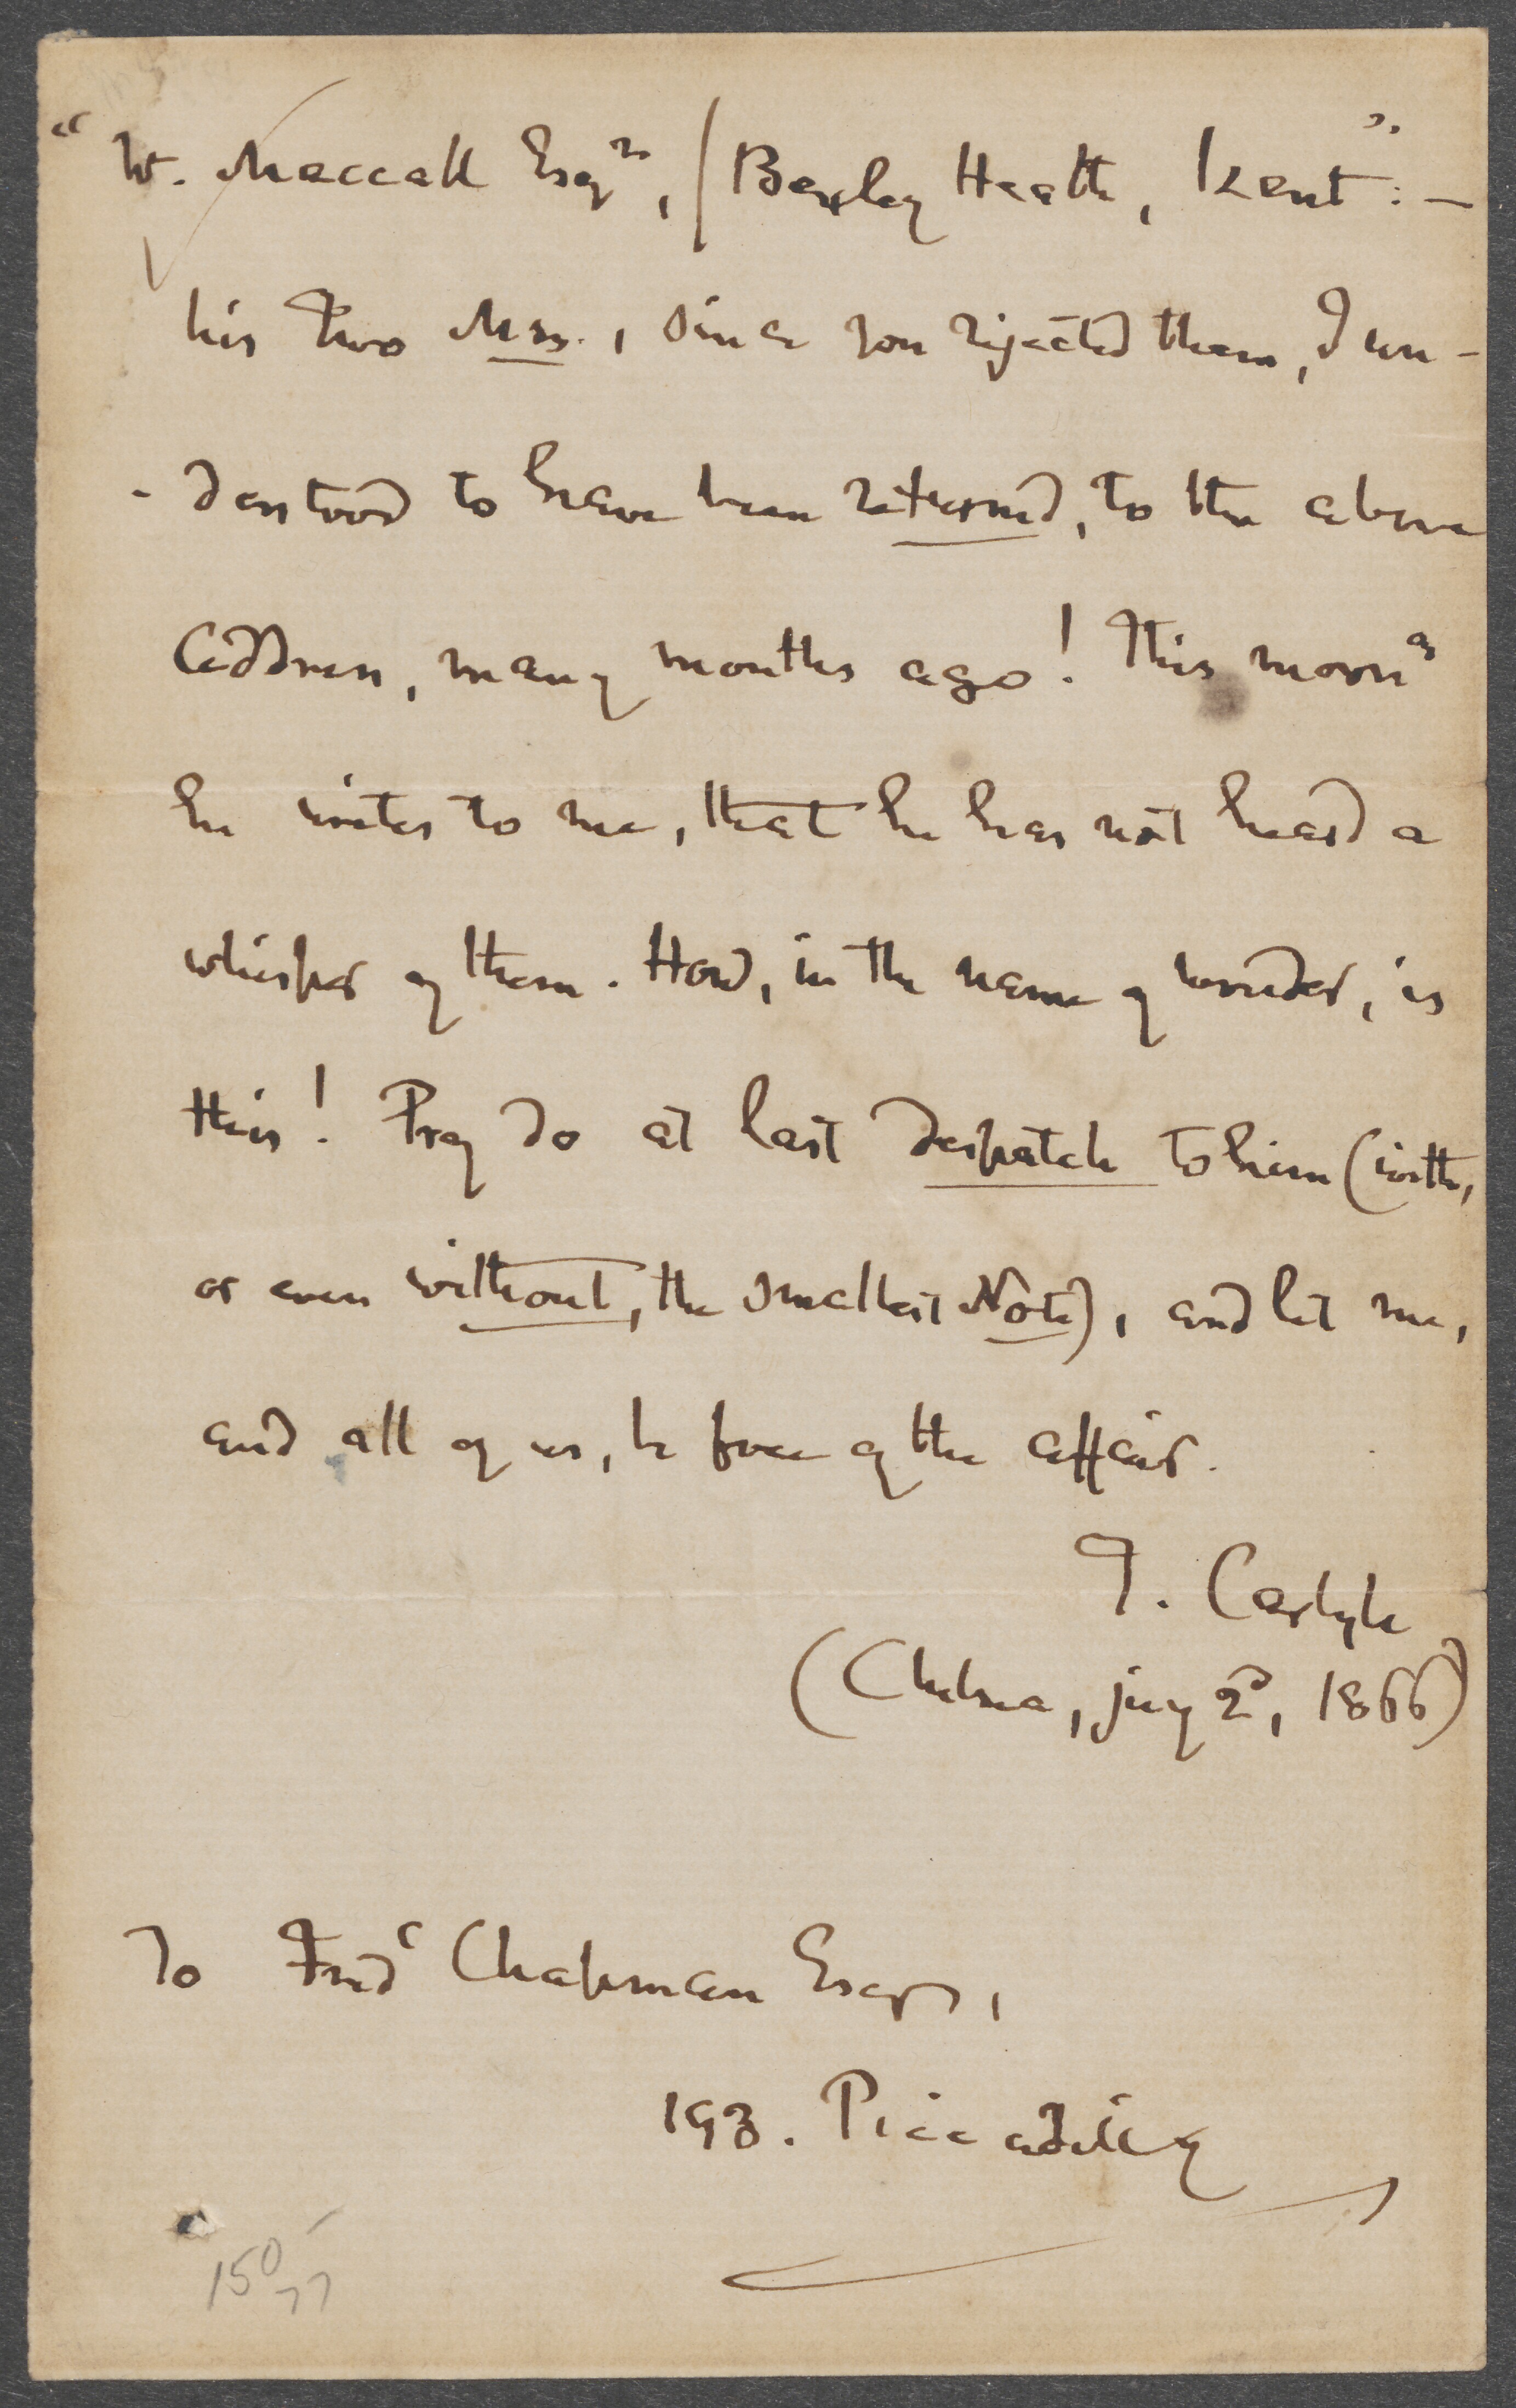 "W. Maccall Esqre, / Bexley Heath, Kent": –
his two Mss., since you rejected them, I un-
-derstood to have been returned, to the above
address, many months ago! This morng
he writes to me, that he has not heard a
whisper of them. How, in the name of wonder, is
this! Pray do at last despatch to him (with,
or even without, the smallest Note), and let me,
and all of us, be free of the affair.
T. Carlyle
(Chelsea, juy 2d, 1866)
To Fredc Chapman Esqr,
193. Piccadilly
150